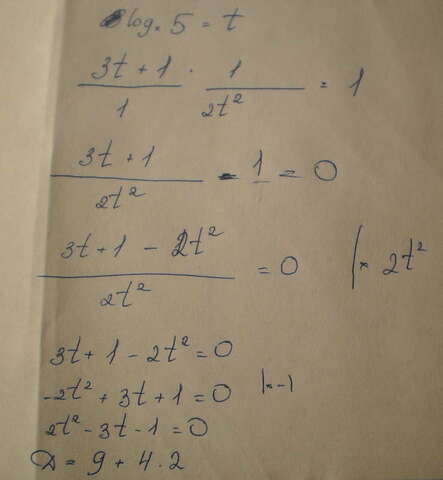 log. 5 = t
3t + 1 / 1 · 1 / 2t² = 1
3t + 1 / 2t² - 1 = 0
3t + 1 - 2t² / 2t² = 0 |* 2t²
3t + 1 - 2t² = 0
-2t² + 3t + 1 = 0 |* -1
2t² - 3t - 1 = 0
D = 9 + 4 · 2